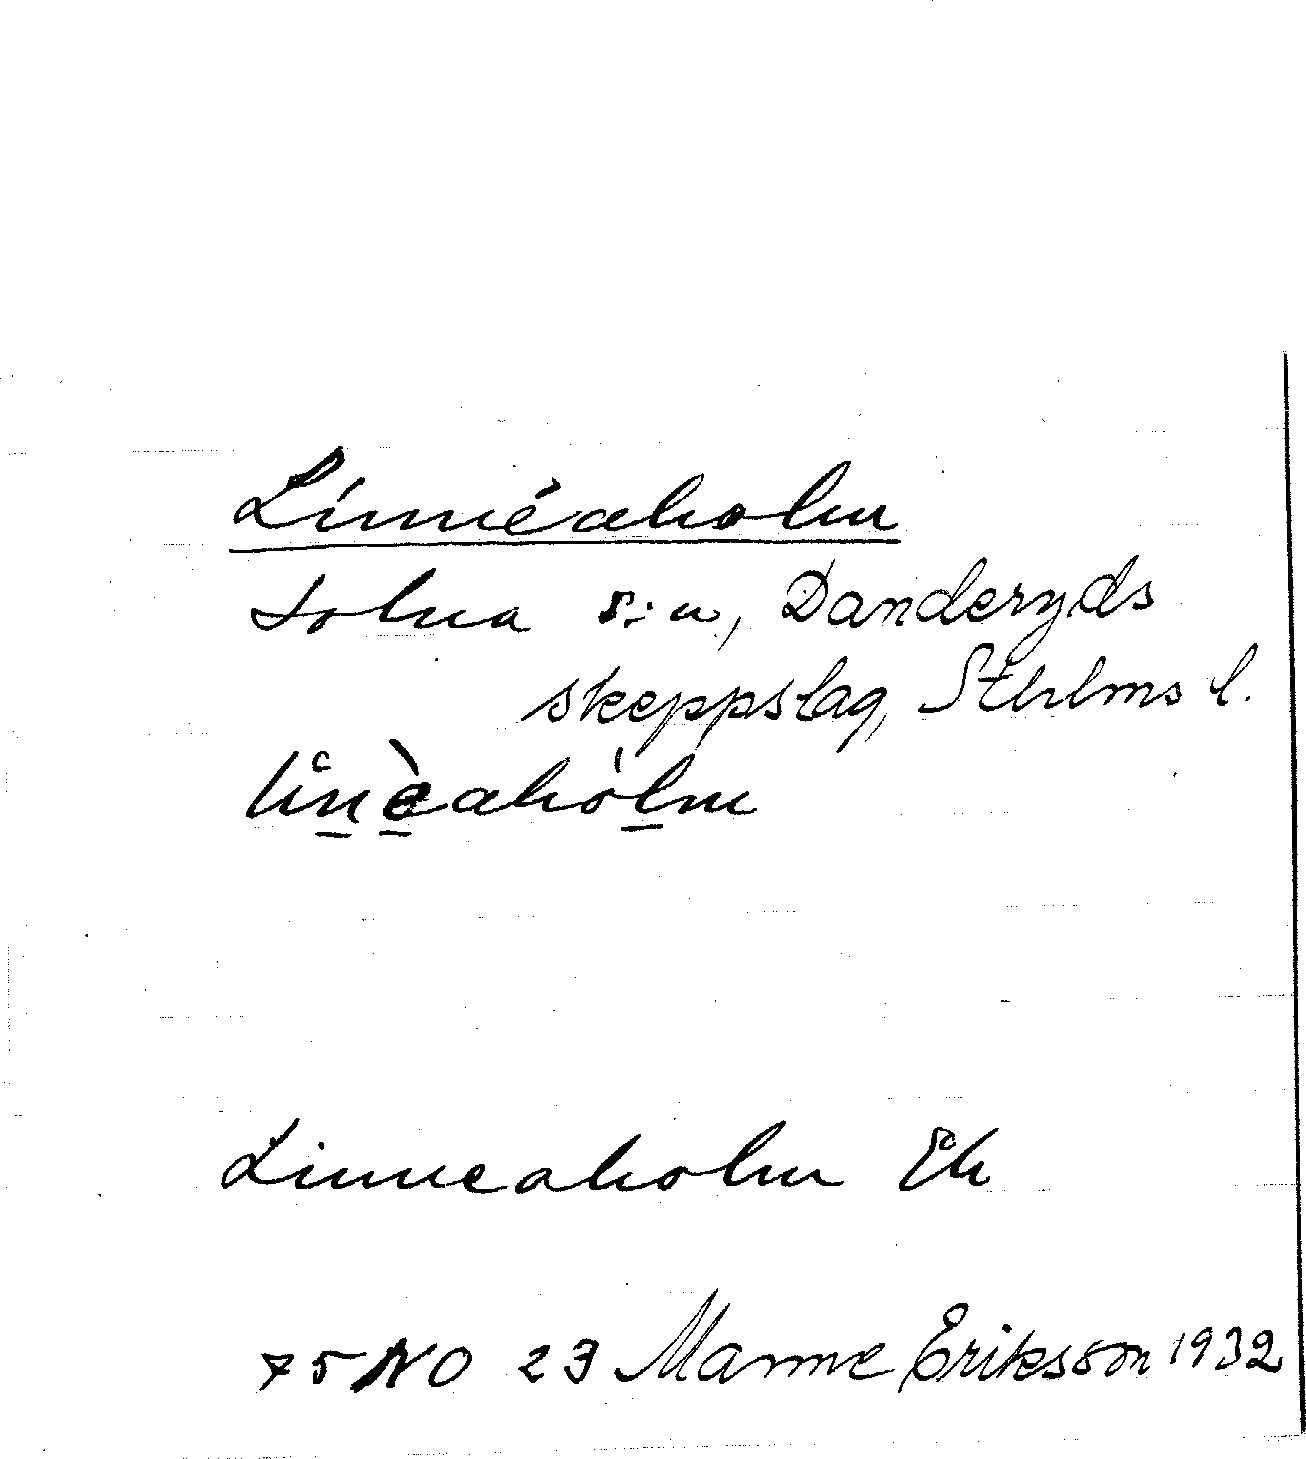 Linnéaholm
Solna s:n, Danderyds
skeppslag, Sthlms l.
linèahòlm
Linneaholm Ek
75 NO 23 Manne Eriksson 1932